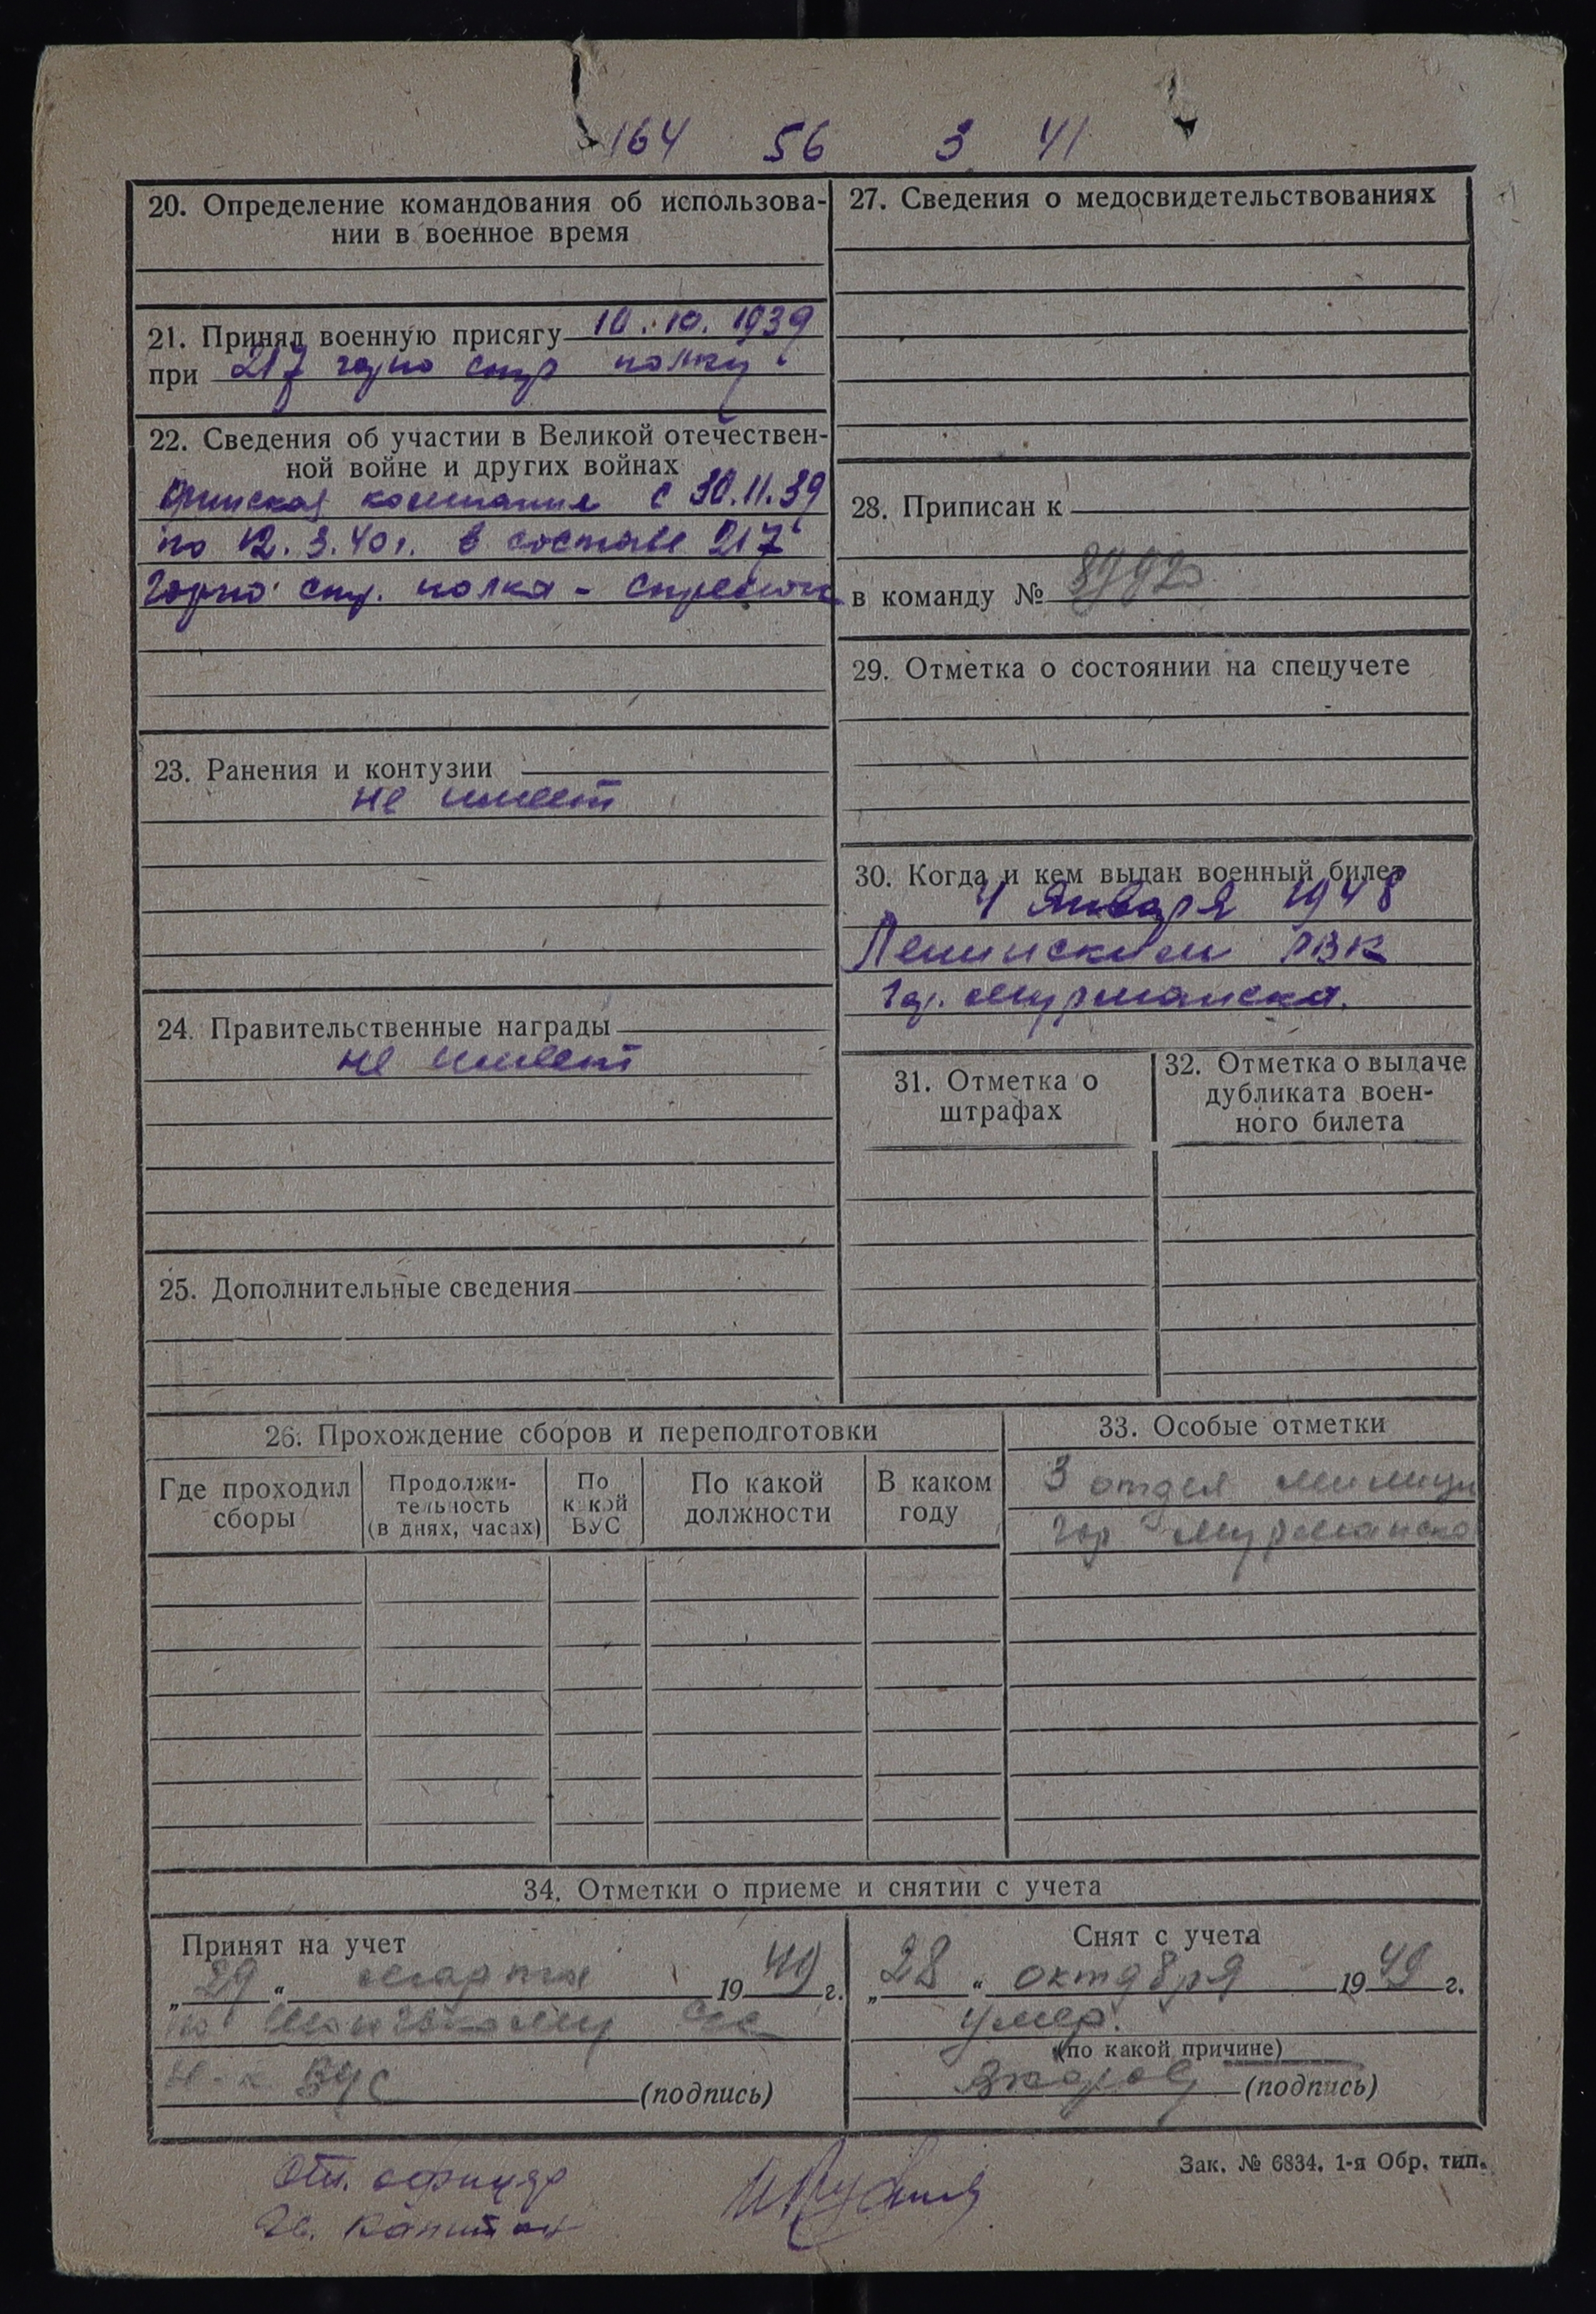 164 56 3 41
20. Определение командования об использова-
нии в военное время
21. Принял военную присягу 10.10.1939
при 217 горно стр полку
22. Сведения об участии в Великой отечествен-
ной войне и других войнах
Финская компания с 30.11.39
по 12.3.40г. в составе 217
горно стр. полка - стрелок
23. Ранения и контузии
не имеет
24. Правительственные награды
не имеет
25. Дополнительные сведения
27. Сведения о медосвидетельствованиях
28. Приписан к
в команду №
29. Отметка о состоянии на спецучете
30. Когда и кем выдан военный билет
4 января 1948
Ленинским РВК
гор. Мурманска.
31. Отметка о
штрафах
32. Отметка о выдаче
дубликата воен-
ного билета
26. Прохождение сборов и переподготовки
Где проходил
сборы
Продолжи-
тельность
(в днях, часах)
По
какой
ВУС
По какой
должности
В каком
году
33. Особые отметки
3 отдел милиции
гор Мурманска
34. Отметки о приеме и снятии с учета
Принят на учет
„29“ марта 1949 г.
по
Н-к ВУС (подпись)
Снят с учета
„28“ октября 1949 г.
умер.
(по какой причине)
(подпись)
Зак. № 6834. 1-я Обр. тип.
От. офицер
Гв. Капитан